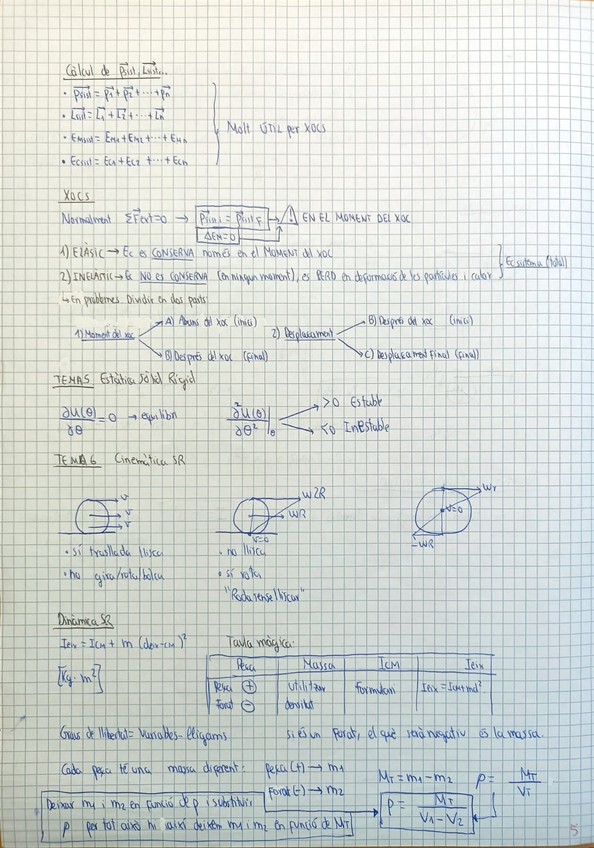 Càlcul de p⃗sist, L⃗sist...
• p⃗sist = p⃗1 + p⃗2 + ... + p⃗n
• L⃗sist = L⃗1 + L⃗2 + ... + L⃗n
• Emsist = Em1 + Em2 + ... + Emn
• Ecsist = Ec1 + Ec2 + ... + Ecn
Molt ÚTIL per XOCS
XOCS
Normalment ΣF⃗ext=0 → p⃗sist i = p⃗sist F → ⚠ EN EL MOMENT DEL XOC
ΔEM=0
1) ELÀSTIC → Ec es CONSERVA només en el MOMENT del xoc
2) INELÀSTIC → Ec NO es CONSERVA (en ningun moment), es PERD en deformació de les partícules i calor
Ec sistema (total)
↳ En problemes: Dividir en dos parts:
1) Moment del xoc
A) Abans del xoc (inici)
B) Després del xoc (final)
2) Desplaçament
B) Després del xoc (inici)
C) Desplaçament Final (final)
TEMA 5 Estàtica Sòlid Rígid
∂U(θ)/∂θ = 0 → equilibri
∂²U(θ)/∂θ² |θ
>0 Estable
<0 InEstable
TEMA 6 Cinemàtica SR
v
v
v
• sí trasllada llisca
• no gira/rota/bolca
W2R
WR
V=0
• no llisca
• sí rota
"Roda sense lliscar"
Wr
V=0
-WR
Dinàmica SR
Ieix = ICM + m (deix-CM)²
[Kg·m²]
Taula màgica:
Peça | Massa | ICM | Ieix
Peça ⊕ | utilitzar | formulari | Ieix = ICM + md²
Forat ⊖ | densitat
Graus de llibertat = Variables - lligams
si és un forat, el què serà negatiu és la massa.
Cada peça té una massa diferent:
peça (+) → m1
Forat (-) → m2
MT = m1 - m2
ρ = MT/VT
Deixar m1 i m2 en funció de ρ i substituir
ρ per tot això hi així deixem m1 i m2 en funció de MT
ρ = MT/(V1 - V2)
5